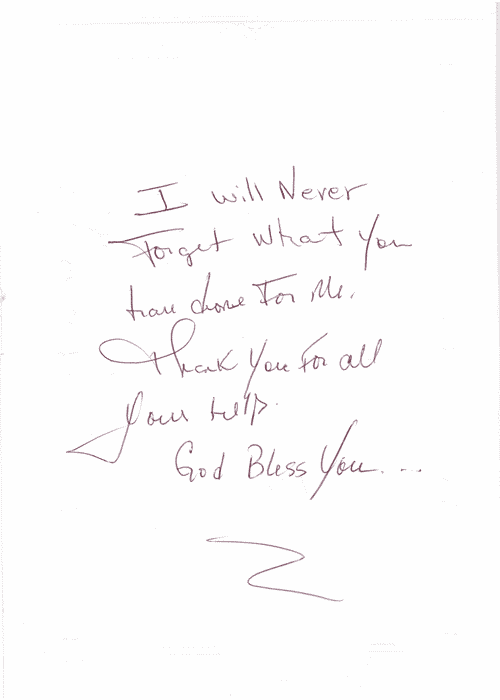 I will Never
Forget what you
have done For Me.
Thank You For all
your help.
God Bless You...